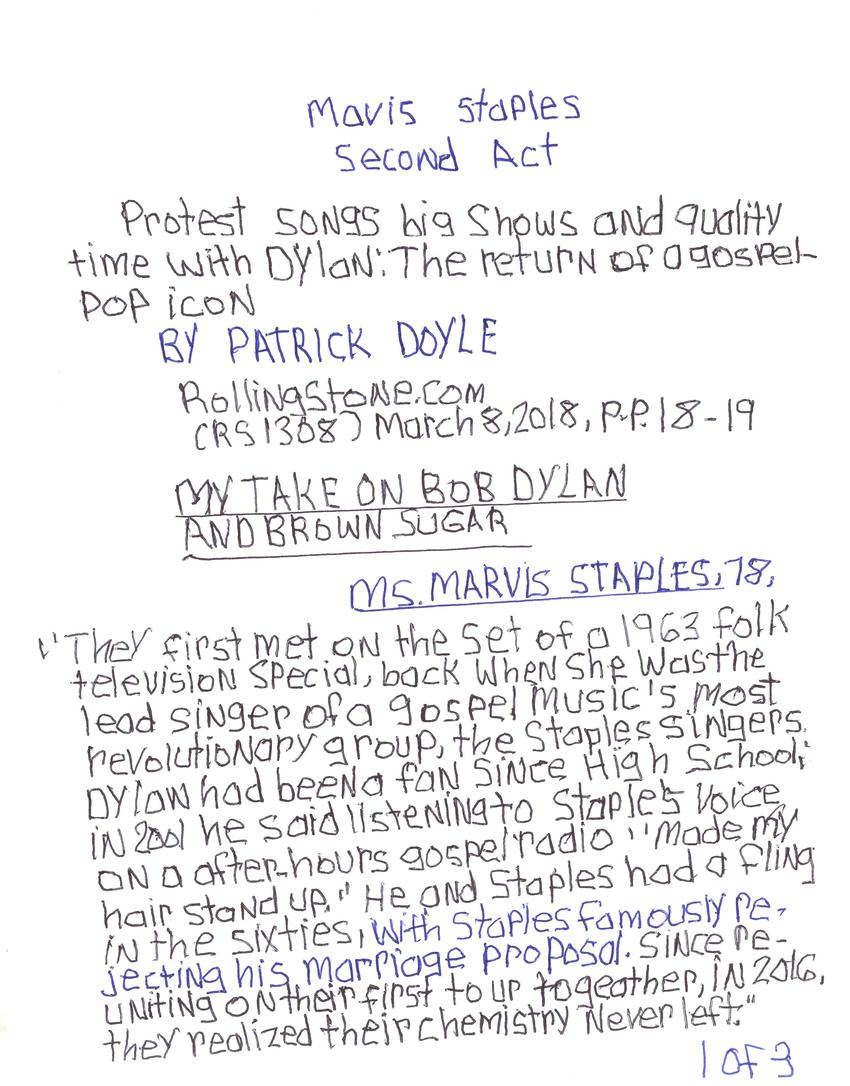 Mavis Staples
Second Act
Protest songs big Shows and quality
time with Dylan: The return of a gospel-
POP icon
BY PATRICK DOYLE
Rollingstone.com
(RS1308) March 8, 2018, P.P. 18-19
MY TAKE ON BOB DYLAN
AND BROWN SUGAR
MS. MARVIS STAPLES, 78,
"They first met on the set of a 1963 folk
television special, back when she was the
lead singer of a gospel music's most
revolutionary group, the Staples singers.
Dylan had been a fan since High School;
in 2001 he said listening to Staple's voice
on a after-hours gospel radio "Made my
hair stand up." He and Staples had a fling
in the sixties, with Staples famously re-
jecting his marriage proposal. Since re-
uniting on their first toup togeather, in 2016,
they realized their chemistry Never left."
1 of 3